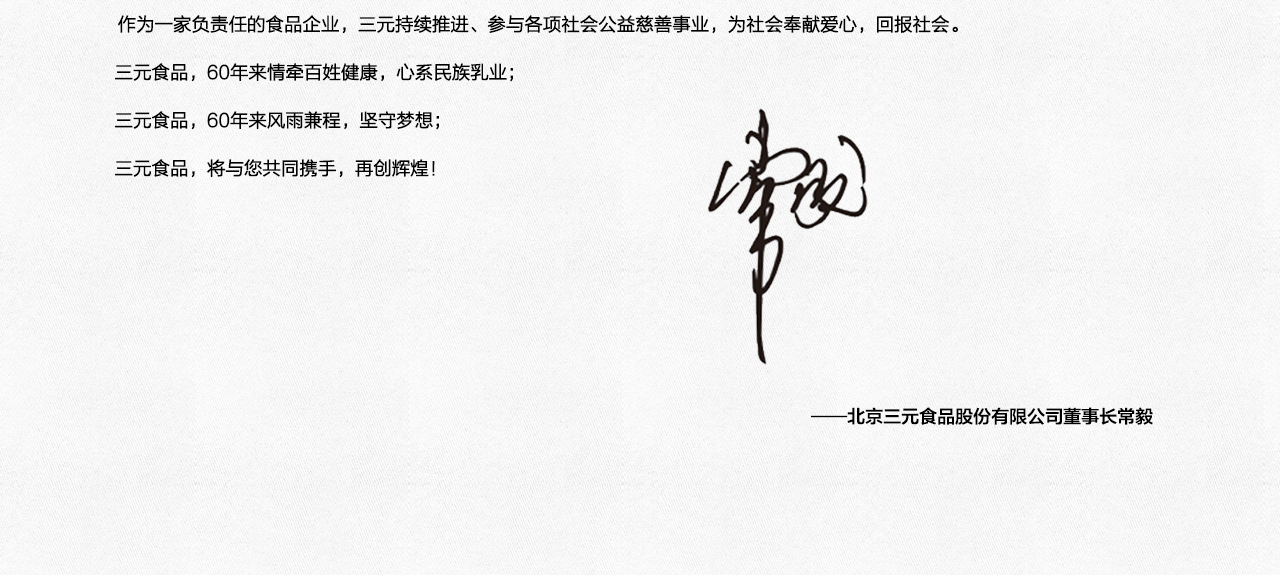 作为一家负责任的食品企业，三元持续推进、参与各项社会公益慈善事业，为社会奉献爱心，回报社会。
三元食品，60年来情牵百姓健康，心系民族乳业；
三元食品，60年来风雨兼程，坚守梦想；
三元食品，将与您共同携手，再创辉煌！
常毅
——北京三元食品股份有限公司董事长常毅